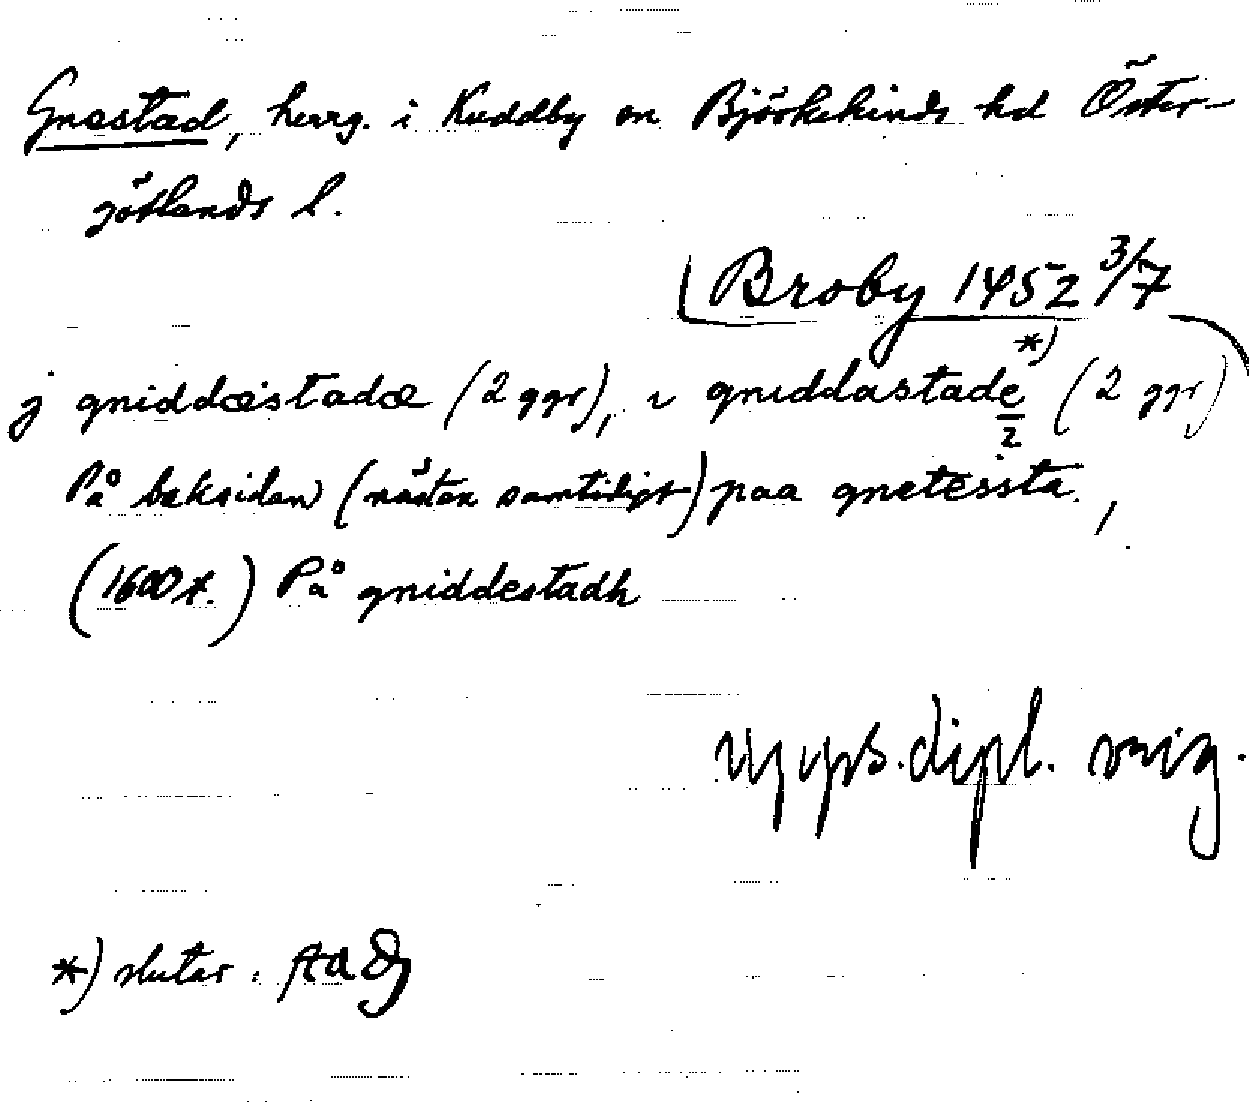 Gnestad, herrg. i Kuddby sn Björkekinds hd Öster-
götlands l.
Broby 1452 3/7
j gniddæstadæ (2 ggr), i gniddastade *) (2 ggr)
2
På baksidan (nästan samtidigt) paa gnetessta,
(1600 t.) På gniddestadh
Upps. dipl. orig.
*) slutar: